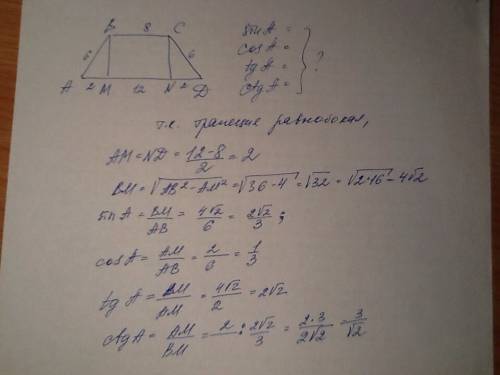 B 8 C
6 6
A 2 M 12 N 2 D
sin A =
cos A =
tg A =
ctg A =
?
т.к. трапеция равнобокая,
AM = ND = (12-8)/2 = 2
BM = √(AB² - AM²) = √(36-4) = √32 = √(2·16) - 4√2
sin A = BM/AB = 4√2/6 = 2√2/3;
cos A = AM/AB = 2/6 = 1/3
tg A = BM/AM = 4√2/2 = 2√2
ctg A = AM/BM = 2 : 2√2/3 = 2·3/2√2 = 3/√2